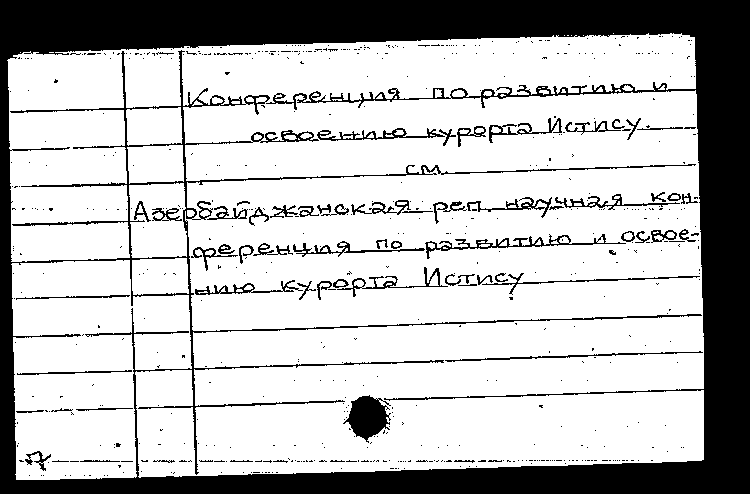 Конференция по развитию и
освоению курорта Истису.
см.
Азербайджанская реп. научная кон-
ференция по развитию и освое-
нию курорта Истису